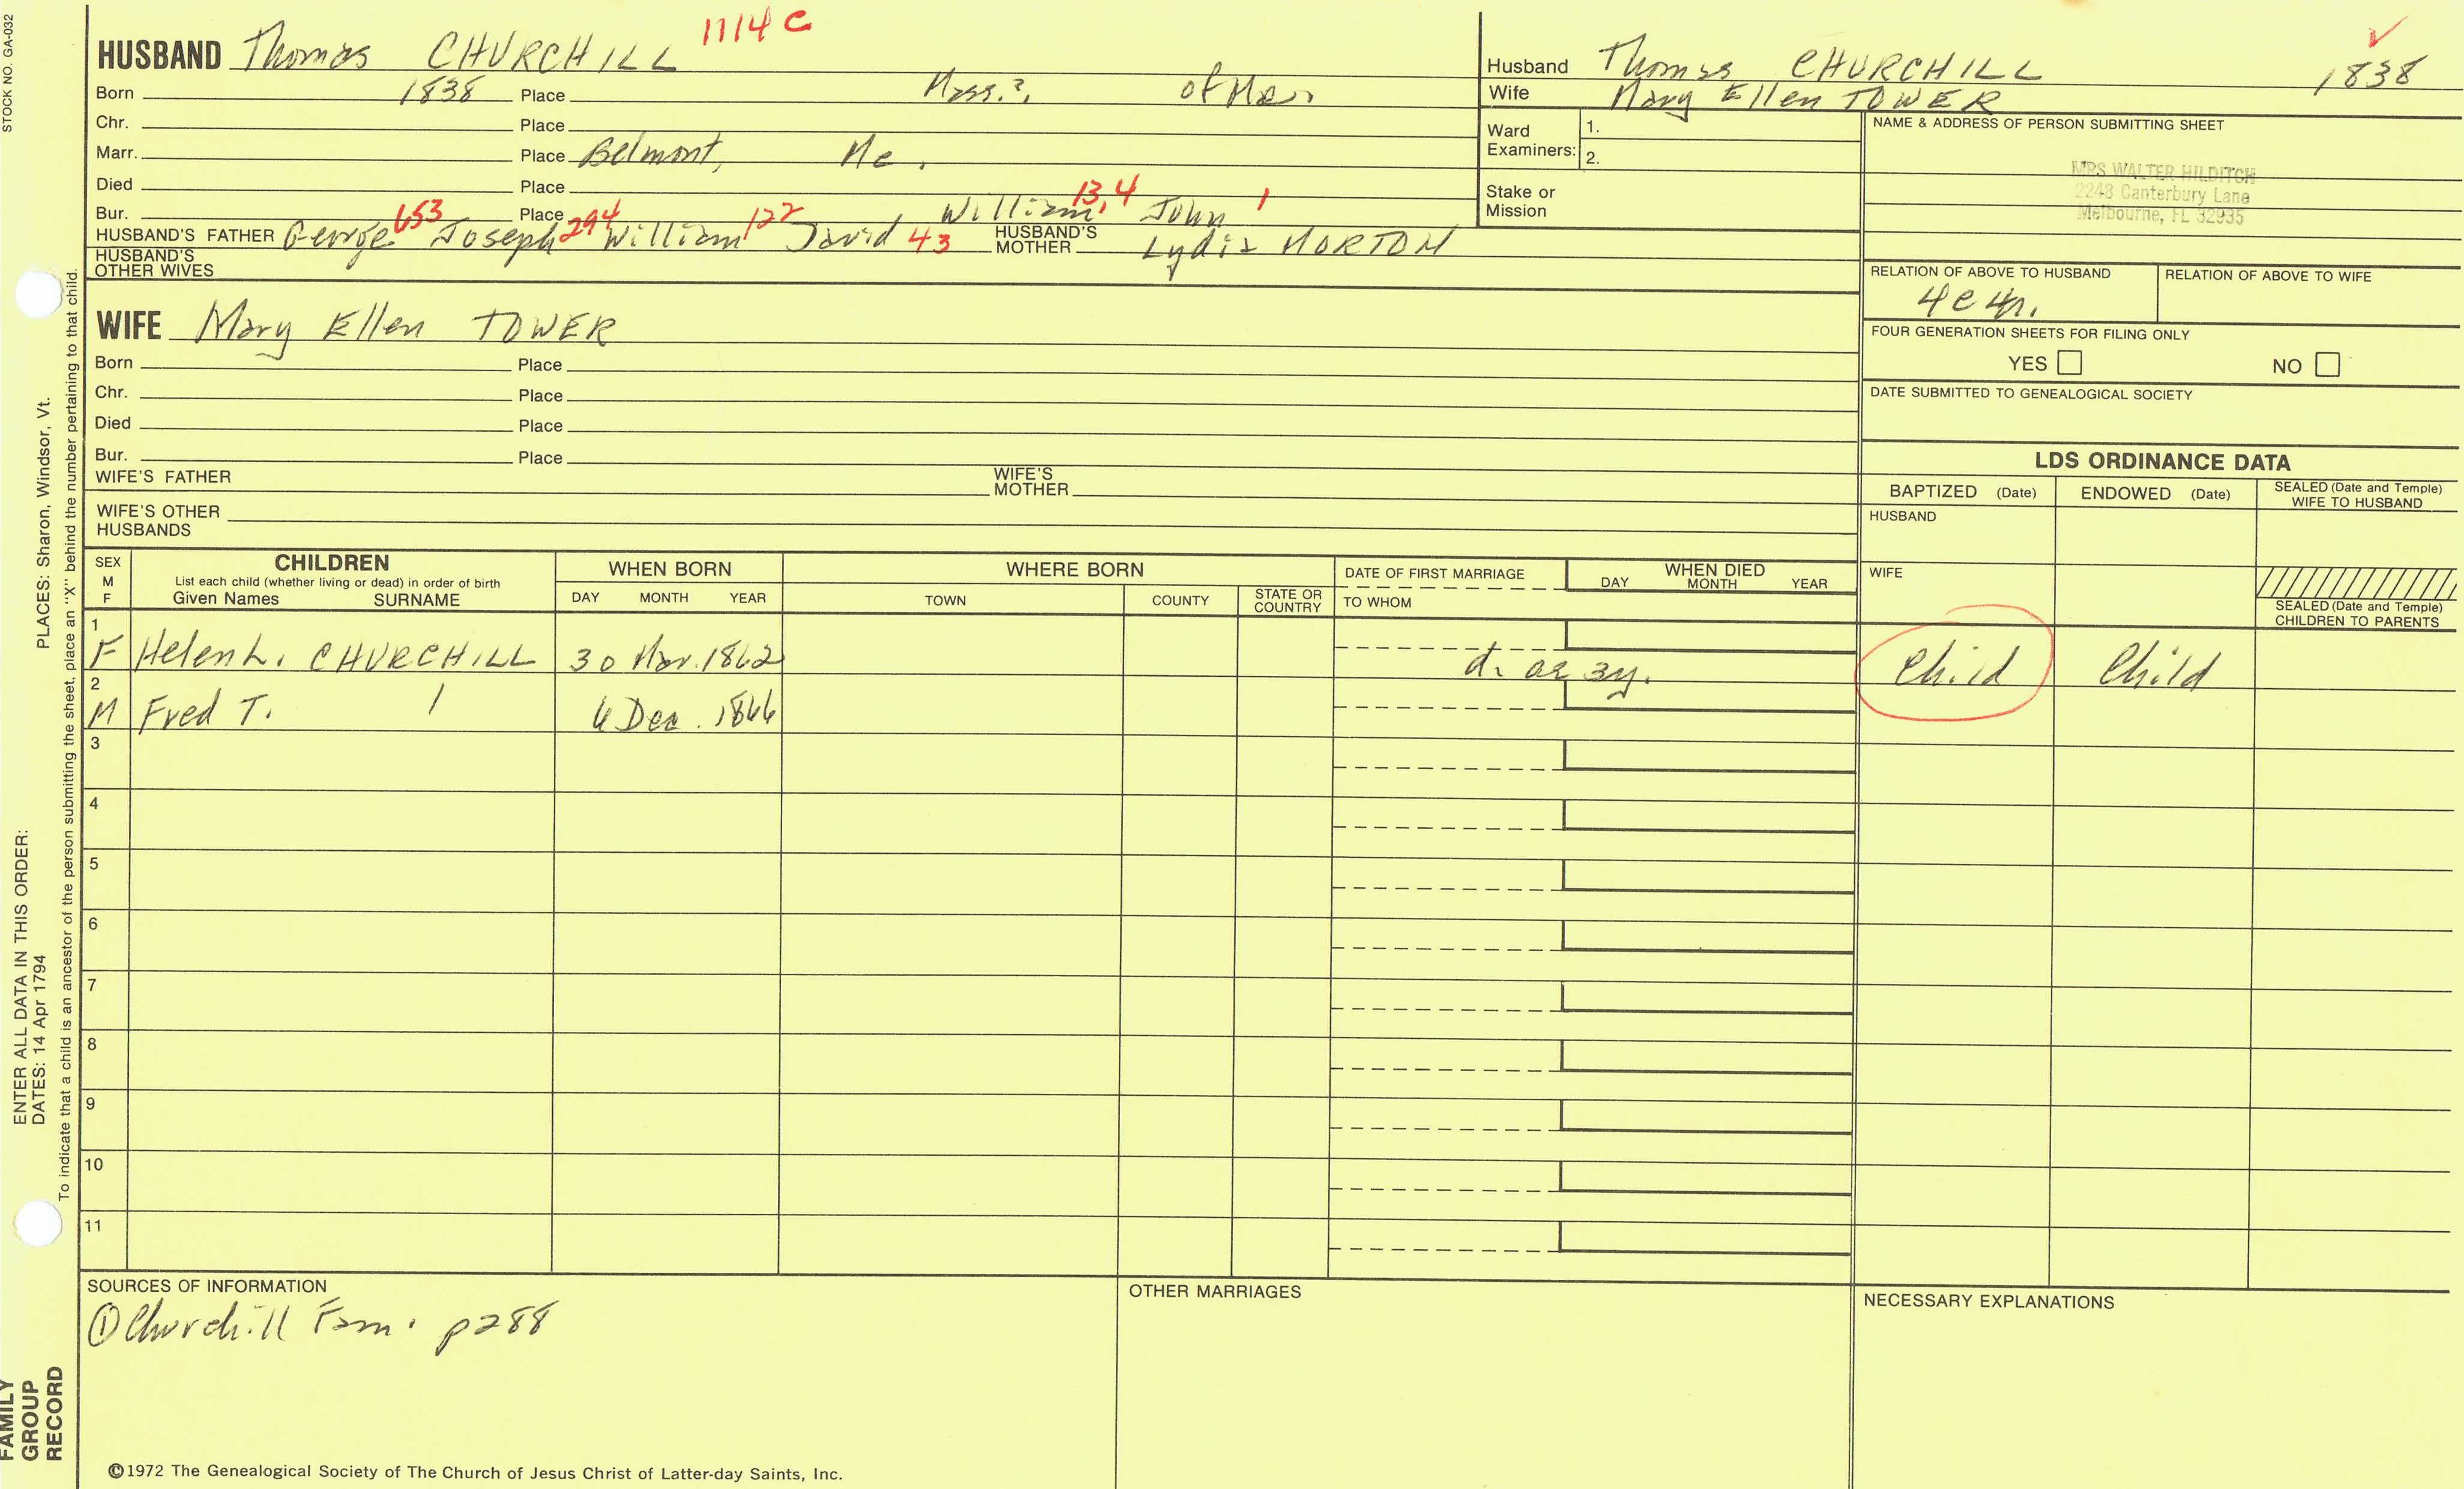 STOCK NO. GA-032
HUSBAND Thomas CHURCHILL 1114 C
Born 1838 Place Mass.?, of Me.
Chr. Place
Marr. Place Belmont, Me.
Died Place
Bur. Place William 13,4 John 1
HUSBAND'S FATHER George 653 Joseph 294 William 122 David 43 HUSBAND'S MOTHER Lydia NORTON
HUSBAND'S OTHER WIVES
WIFE Mary Ellen TOWER
Born Place
Chr. Place
Died Place
Bur. Place
WIFE'S FATHER WIFE'S MOTHER
WIFE'S OTHER HUSBANDS
Husband Thomas CHURCHILL 1838
Wife Mary Ellen TOWER
Ward Examiners: 1.
2.
Stake or Mission
NAME & ADDRESS OF PERSON SUBMITTING SHEET
MRS WALTER HILDITCH
2248 Canterbury Lane
Melbourne, FL 32935
RELATION OF ABOVE TO HUSBAND RELATION OF ABOVE TO WIFE
FOUR GENERATION SHEETS FOR FILING ONLY
YES NO
DATE SUBMITTED TO GENEALOGICAL SOCIETY
LDS ORDINANCE DATA
BAPTIZED (Date) ENDOWED (Date) SEALED (Date and Temple) WIFE TO HUSBAND
HUSBAND
WIFE
SEALED (Date and Temple) CHILDREN TO PARENTS
SEX M F CHILDREN WHEN BORN WHERE BORN DATE OF FIRST MARRIAGE WHEN DIED
List each child (whether living or dead) in order of birth
Given Names SURNAME DAY MONTH YEAR TOWN COUNTY STATE OR COUNTRY TO WHOM DAY MONTH YEAR
1 F Helen L. CHURCHILL 30 Mar. 1862 d. ae 3y. Child Child
2 M Fred T. / 6 Dec. 1866
3
4
5
6
7
8
9
10
11
SOURCES OF INFORMATION
① Churchill Fam. p288
OTHER MARRIAGES
NECESSARY EXPLANATIONS
©1972 The Genealogical Society of The Church of Jesus Christ of Latter-day Saints, Inc.
ENTER ALL DATA IN THIS ORDER:
DATES: 14 Apr 1794 PLACES: Sharon, Windsor, Vt.
To indicate that a child is an ancestor of the person submitting the sheet, place an "X" behind the number pertaining to that child.
FAMILY
GROUP
RECORD